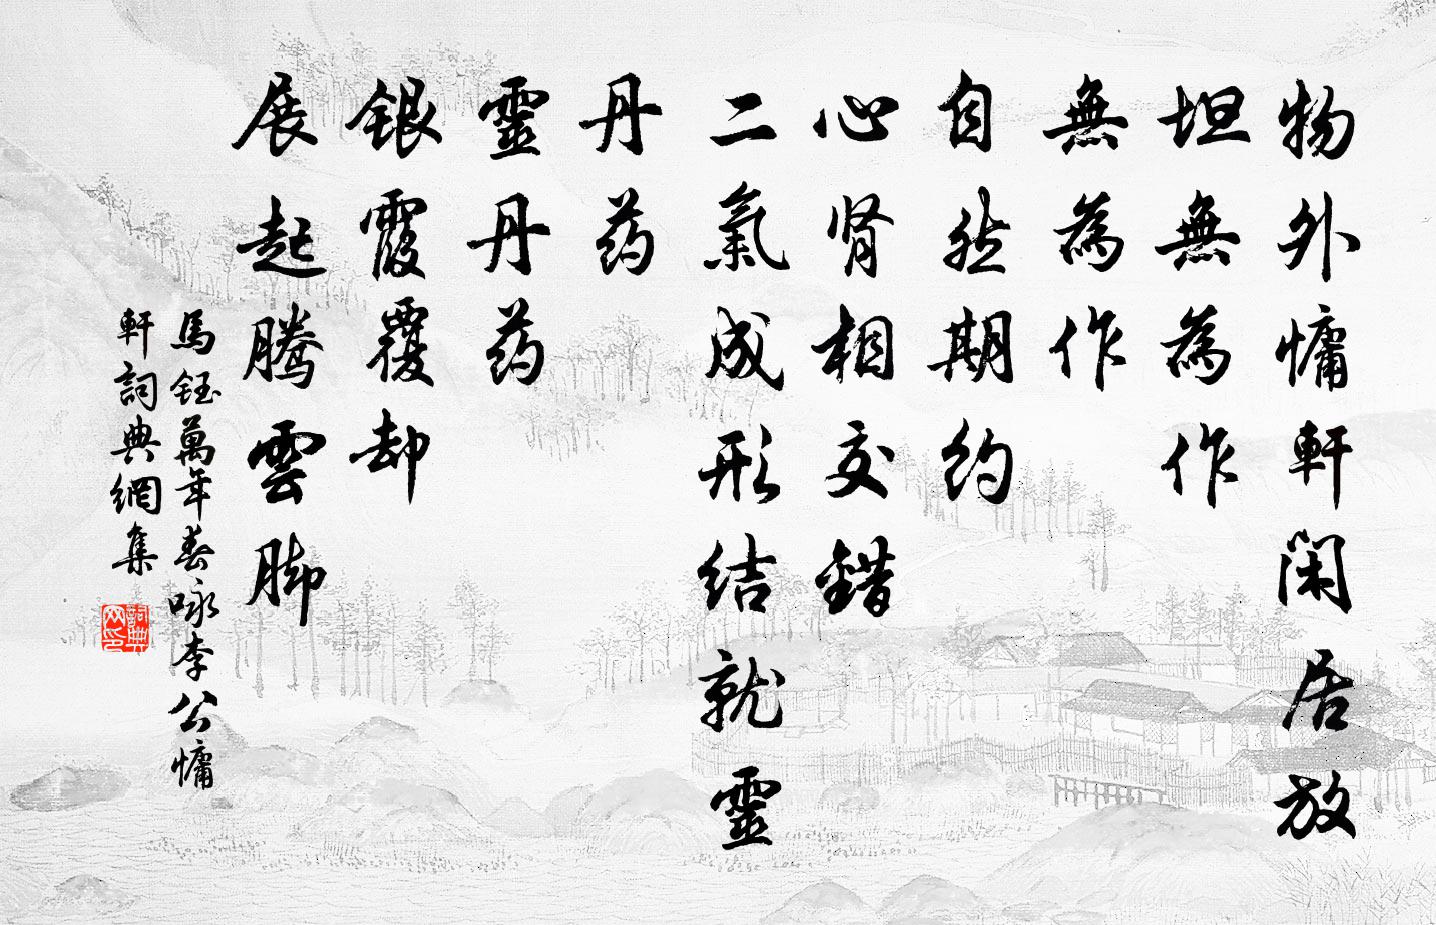 物外慵軒閑居放
坦無為作
無為作
自然期约
心肾相交錯
二氣成形结就靈
丹药
靈丹药
銀霞覆却
展起腾雲脚
馬鈺萬年春咏李公慵
軒詞典網集
詞典网印